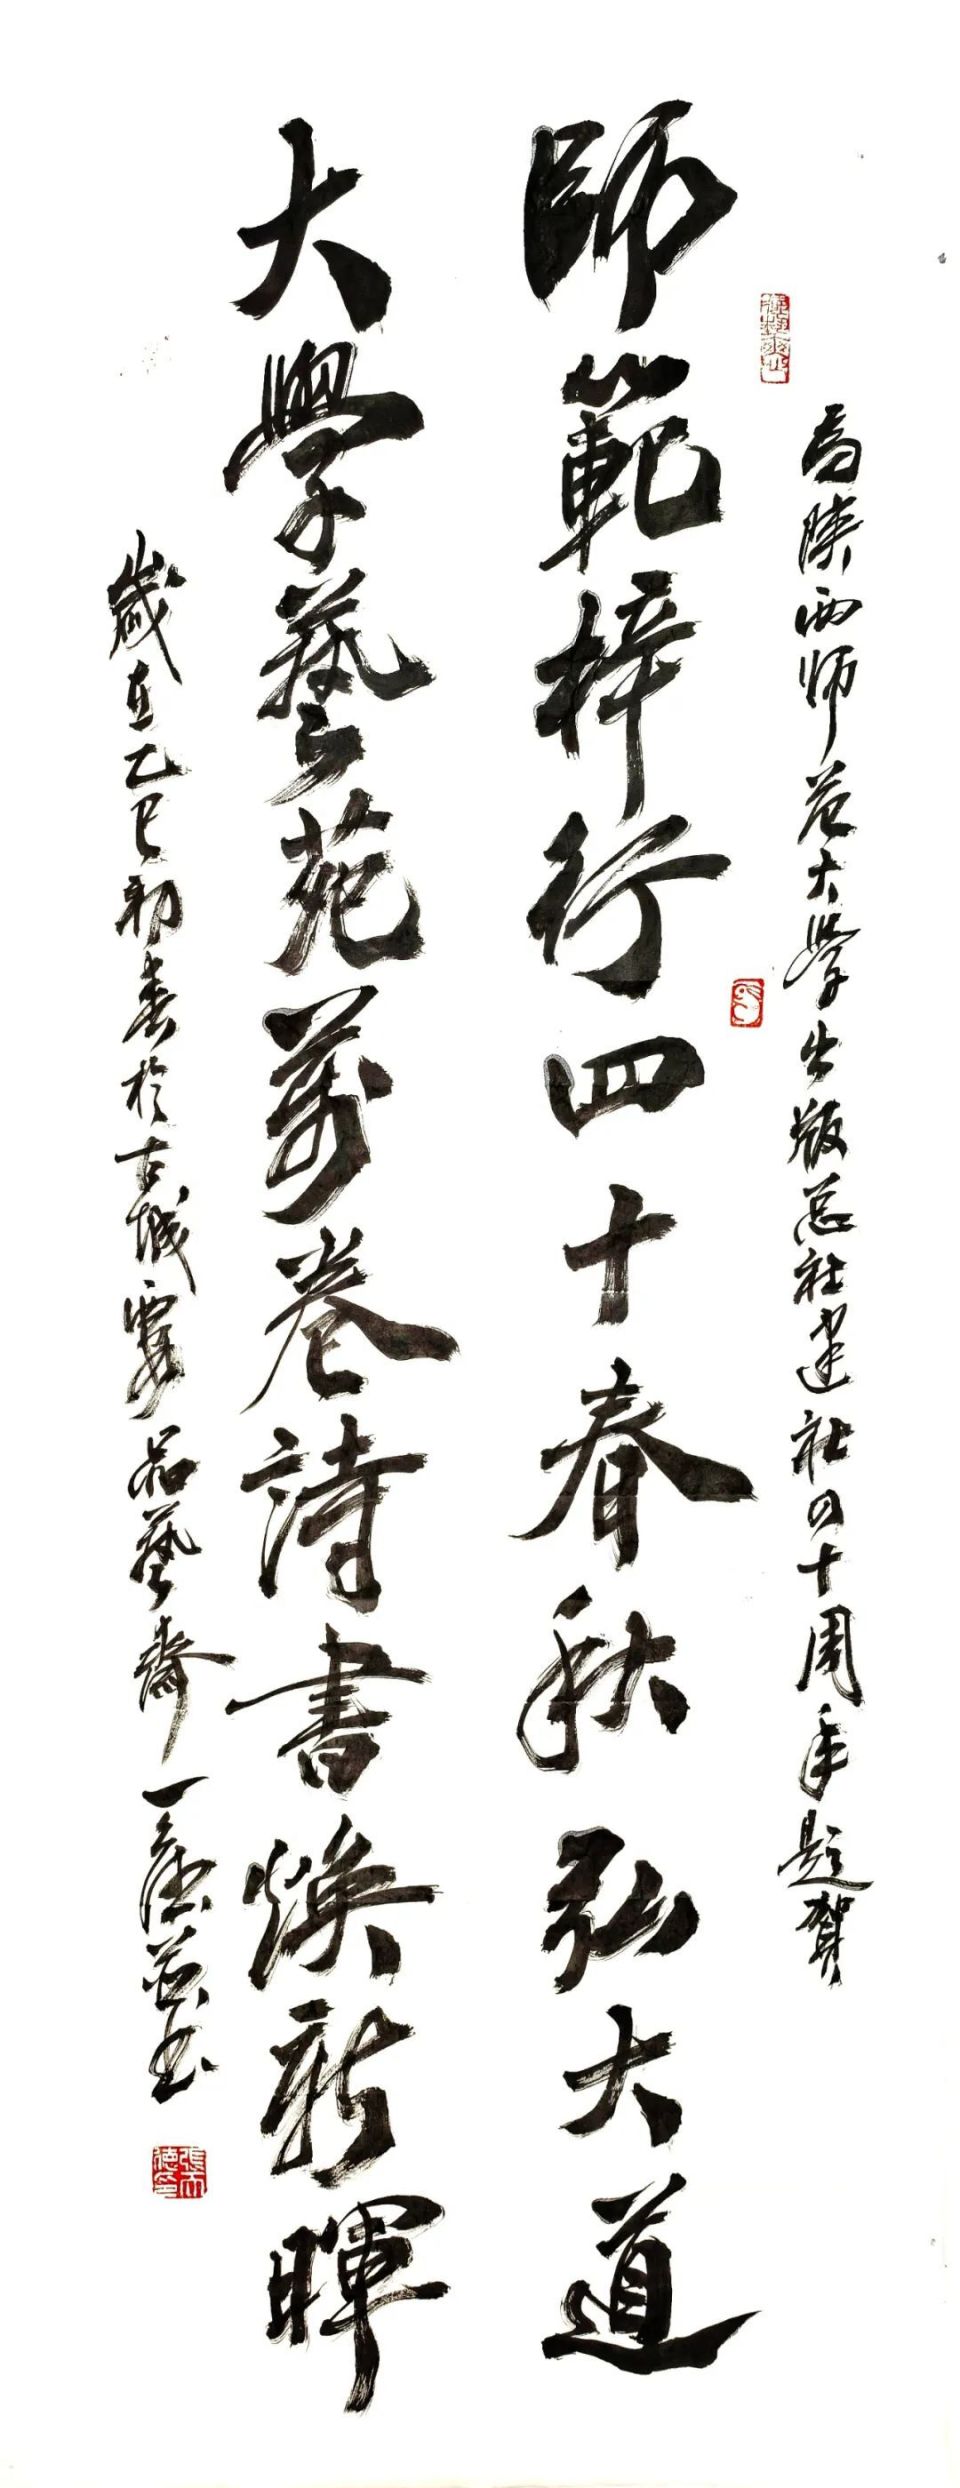 为陕西师范大学出版总社建社四十周年题贺
師範梓行四十春秋弘大道
大學藝苑萬卷詩書焕新暉
歲在乙巳初春於古城雩品藝齋一德並书